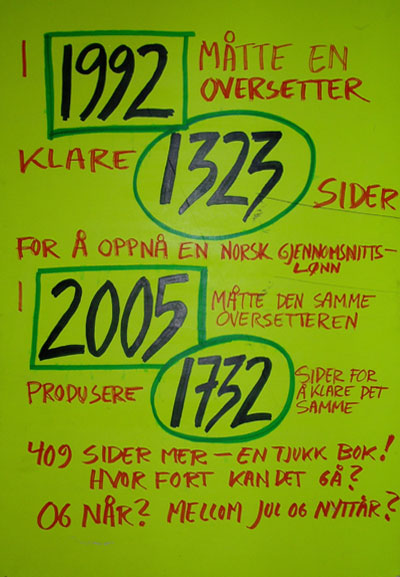 I 1992 MÅTTE EN OVERSETTER
KLARE 1323 SIDER
FOR Å OPPNÅ EN NORSK GJENNOMSNITTS-
LØNN
I 2005 MÅTTE DEN SAMME OVERSETTEREN
PRODUSERE 1732 SIDER FOR Å KLARE DET SAMME
409 SIDER MER – EN TJUKK BOK!
HVOR FORT KAN DET GÅ?
OG NÅR? MELLOM JUL OG NYTTÅR?